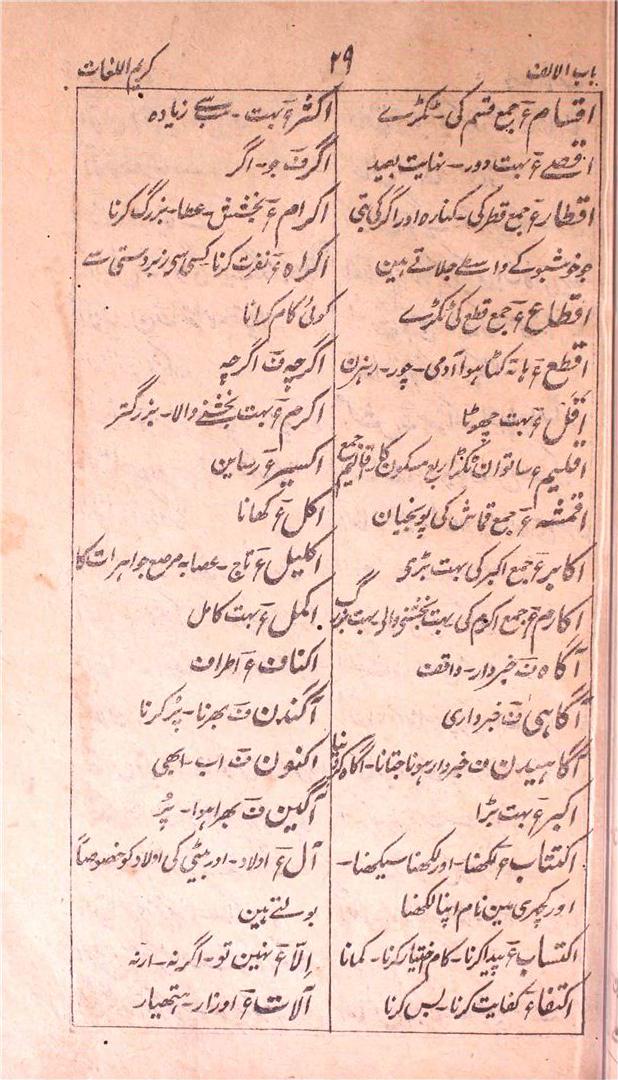 باب الالف
۲۹
کریم اللغات
اقسام ع جمع قسم کی - ٹکڑے
اقصے ع بہت دور - نہایت بعید
اقطار ع جمع قطر کی - کنارہ اور اگر کی بتی
جو خوشبو کے واسطے جلاتے ہین
اقطاع ع جمع قطع کی ٹکڑے
اقطع ع ہاتہ کٹا ہوا آدمی - چور - رہزن
اقل ع بہت چھوٹا
اقلیم ع ساتوان ٹکڑا ربع مسکون کا اقالیم جمع
اقمشہ ع جمع قماش کی پونجیان
اکابر ع جمع اکبر کی بہت بڑی
اکارم ع جمع اکرم کی بہت بخشنے والی بہت بزرگ
آگاہ ف خبردار - واقف
آگاہی ف خبرداری
آگاہیدن ف خبردار ہونا جتانا - آگاہ کرنا
اکبر ع بہت بڑا
اکتتاب ع لکھنا - اور لکھنا سیکھنا -
اور کچہری مین نام اپنا لکھنا
اکتساب ع پیدا کرنا - کام اختیار کرنا - کمانا
اکتفاء ع کفایت کرنا - بس کرنا
اکثر ع بہت - سب سے زیادہ
اگر ف جو - اگر
اکرام ع بخشش - عطا - بزرگ کرنا
اکراہ ع نفرت کرنا کسی سی زبردستی سے
کوئی کام کرانا
اگرچہ ف اگرچہ
اکرم ع بہت بخشنے والا - بزرگتر
اکسیر ع رساین
اکل ع کھانا
اکلیل ع تاج - عصابہ مرصع جواہرات کا
اکمل ع بہت کامل
اکناف ع اطراف
آگندن ف بھرنا - پُر کرنا
اکنون ف اب - ابھی
آگین ف بھرا ہوا - پُر
آل ع اولاد - اور بیٹی کی اولاد کو خصوصاً
بولتے ہین
اِلّا ع نہین تو - اگر نہ - ارنہ
آلات ع اوزار - ہتھیار